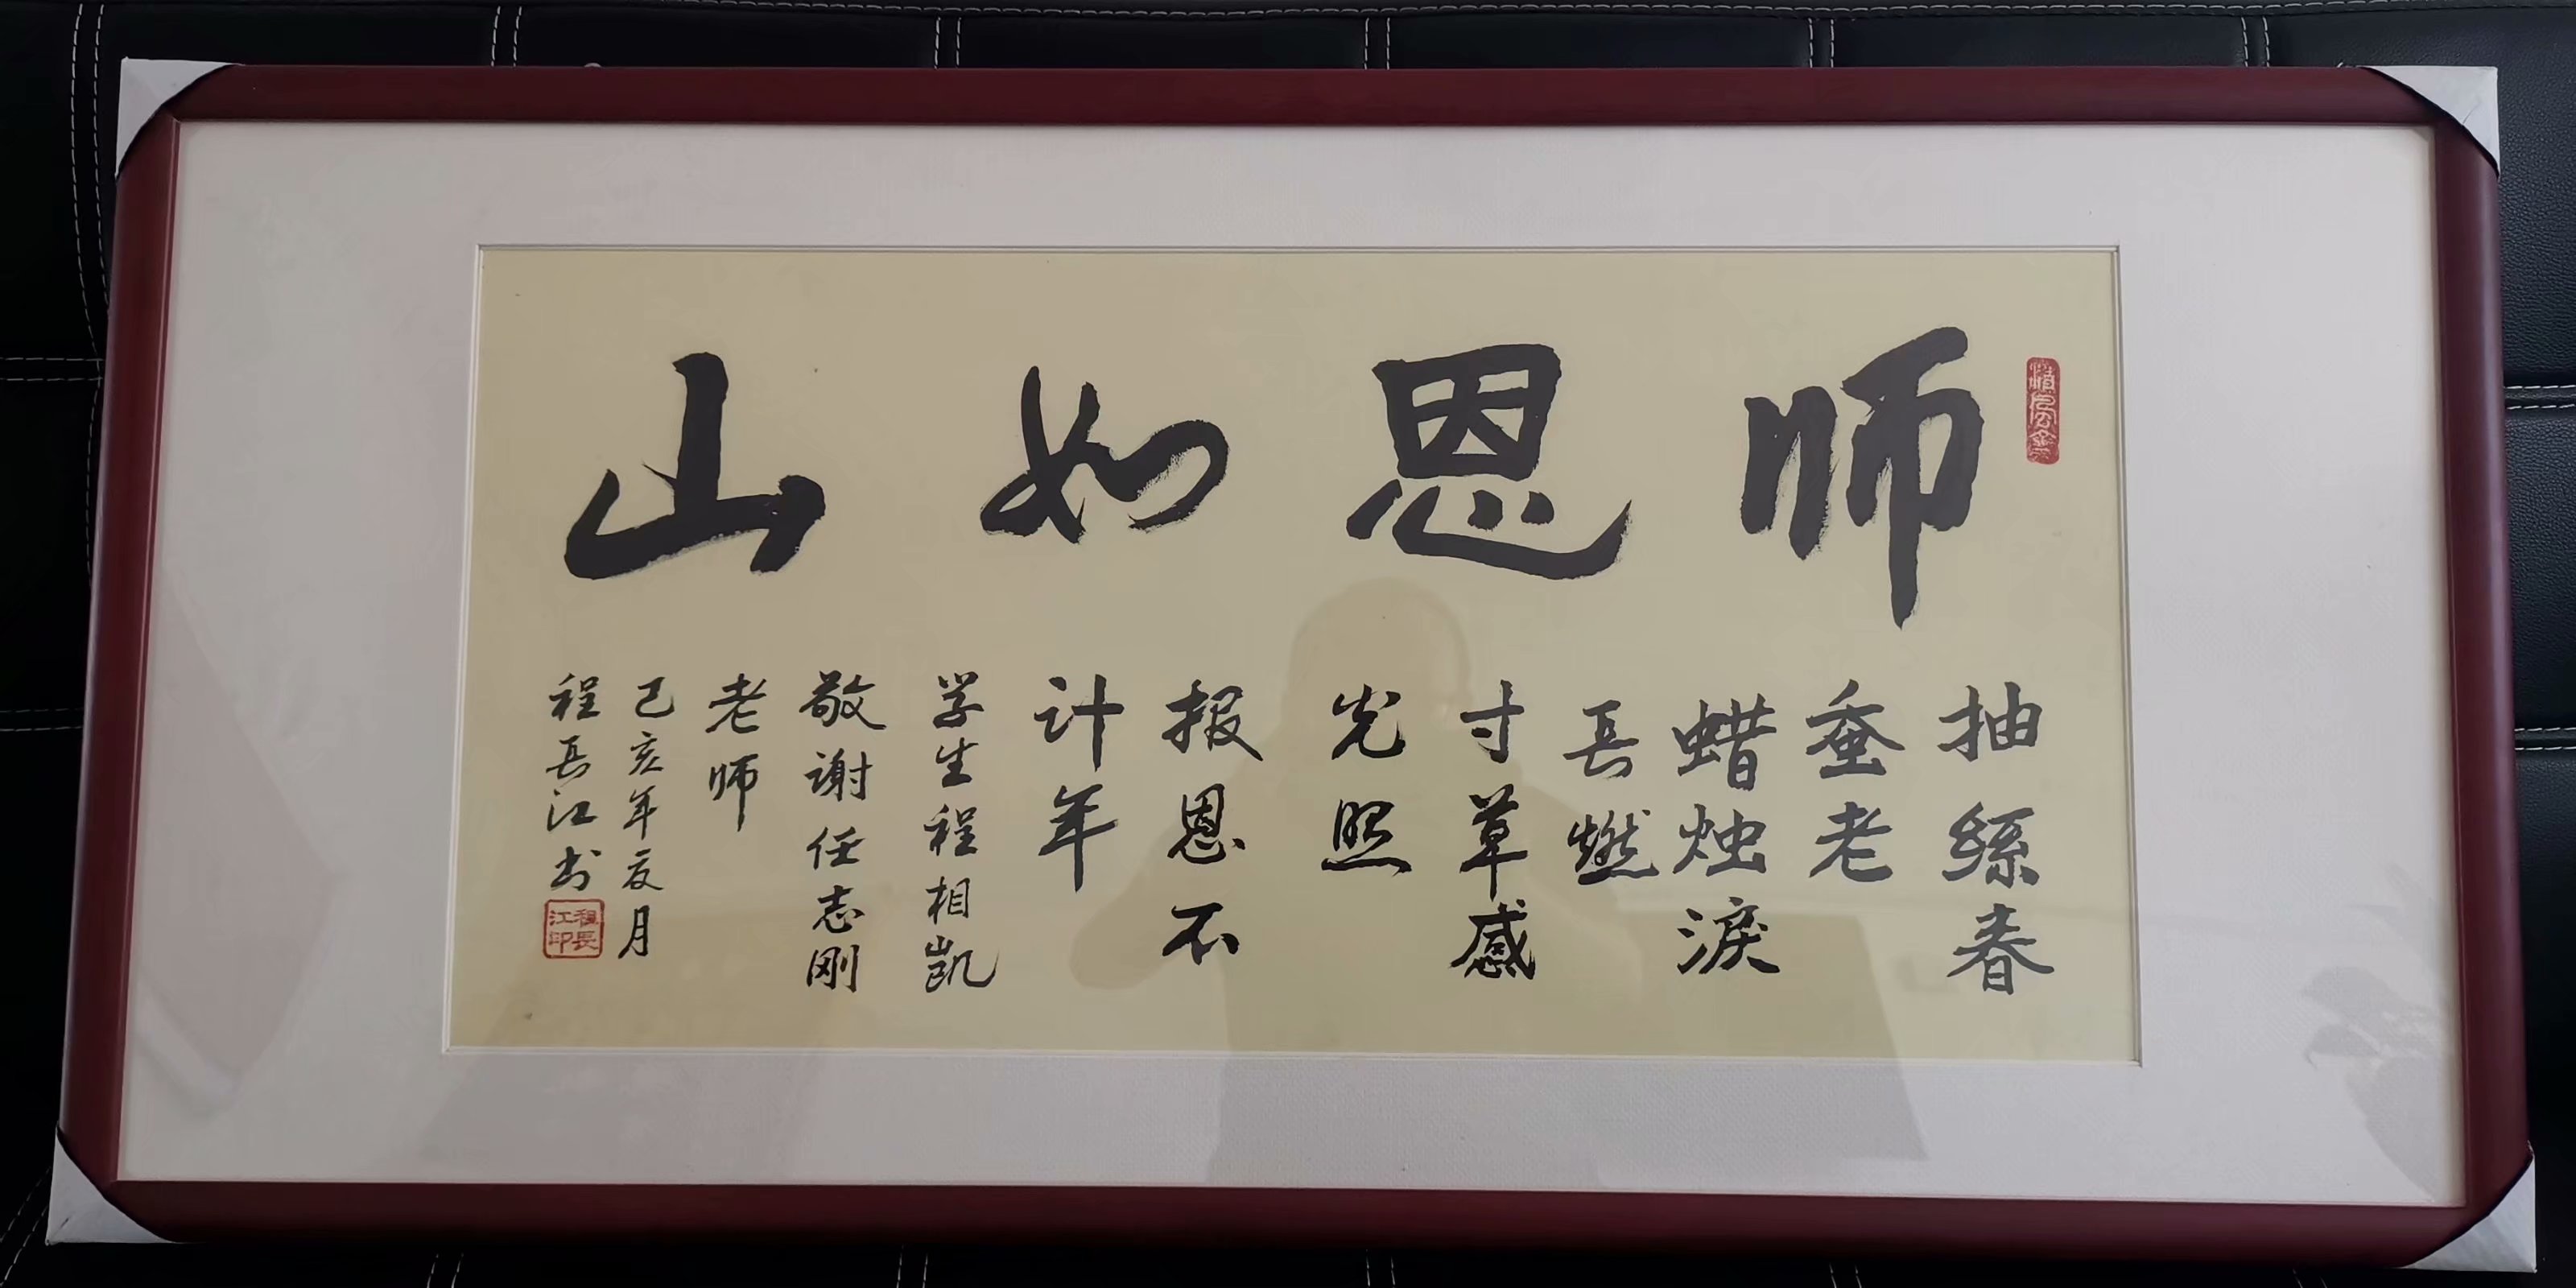 师恩如山
抽絲春
蚕老
蜡烛淚
長燃
寸草感
光照
报恩不
计年
学生程相凯
敬谢任志刚
老师
己亥年夏月
程長江书
程長江印